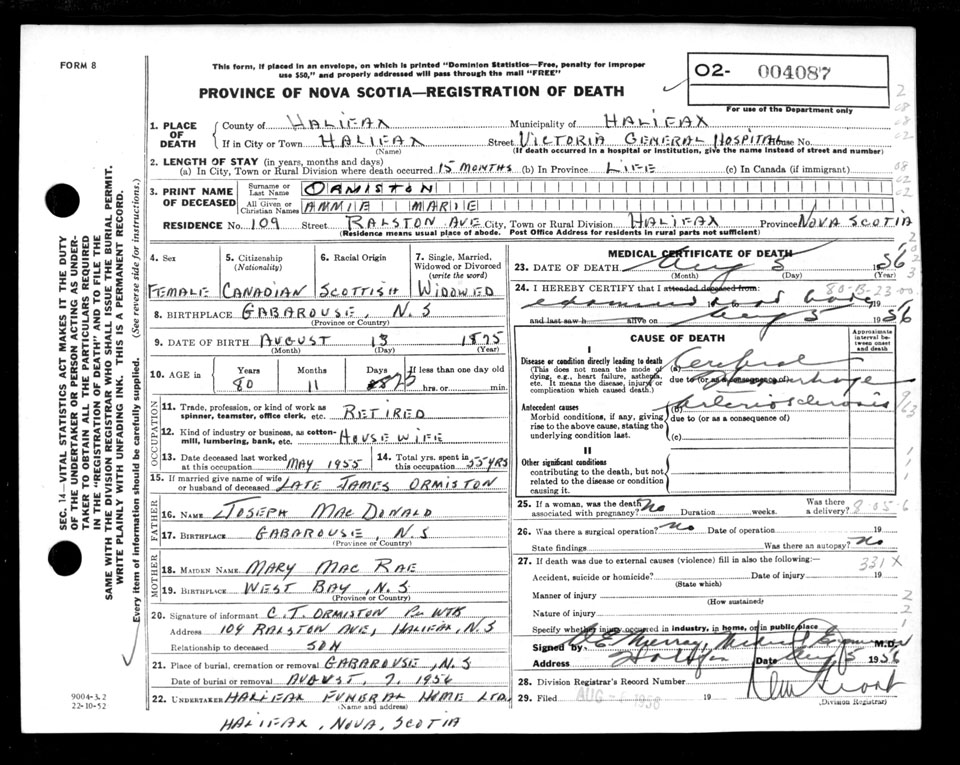 FORM 8
This form, if placed in an envelope, on which is printed "Dominion Statistics—Free, penalty for improper
use $50," and properly addressed will pass through the mail "FREE"
O2- 004087
PROVINCE OF NOVA SCOTIA—REGISTRATION OF DEATH
For use of the Department only
1. PLACE OF DEATH
County of HALIFAX Municipality of HALIFAX
If in City or Town HALIFAX Street VICTORIA GENERAL HOSPITAL House No.
(Name) (If death occurred in a hospital or institution, give the name instead of street and number)
2. LENGTH OF STAY (in years, months and days)
(a) In City, Town or Rural Division where death occurred 15 MONTHS (b) In Province LIFE (c) In Canada (if immigrant)
3. PRINT NAME OF DECEASED
Surname or Last Name ORMISTON
All Given or Christian Names ANNIE MARIE
RESIDENCE No. 109 Street RALSTON AVE City, Town or Rural Division HALIFAX Province NOVA SCOTIA
(Residence means usual place of abode. Post Office Address for residents in rural parts not sufficient)
4. Sex
FEMALE
5. Citizenship (Nationality)
CANADIAN
6. Racial Origin
SCOTTISH
7. Single, Married, Widowed or Divorced (write the word)
WIDOWED
8. BIRTHPLACE GABAROUSE, N.S
(Province or Country)
9. DATE OF BIRTH AUGUST 13 1875
(Month) (Day) (Year)
10. AGE in Years Months Days If less than one day old
80 11 hrs. or min.
OCCUPATION
11. Trade, profession, or kind of work as spinner, teamster, office clerk, etc. RETIRED
12. Kind of industry or business, as cotton-mill, lumbering, bank, etc. HOUSE WIFE
13. Date deceased last worked at this occupation MAY 1955
14. Total yrs. spent in this occupation 55 YRS
15. If married give name of wife or husband of deceased LATE JAMES ORMISTON
FATHER
16. NAME JOSEPH MAC DONALD
17. BIRTHPLACE GABAROUSE, N.S
(Province or Country)
MOTHER
18. MAIDEN NAME MARY MAC RAE
19. BIRTHPLACE WEST BAY, N.S
(Province or Country)
20. Signature of informant C. T. ORMISTON Per WTK
Address 109 RALSTON AVE, HALIFAX, N.S
Relationship to deceased SON
21. Place of burial, cremation or removal GABAROUSE, N.S
Date of burial or removal AUGUST, 7, 1956
22. UNDERTAKER HALIFAX FUNERAL HOME LTD.
(Name and address)
HALIFAX, NOVA, SCOTIA
MEDICAL CERTIFICATE OF DEATH
23. DATE OF DEATH Aug 5 1956
(Month) (Day) (Year)
24. I HEREBY CERTIFY that I attended deceased from: 80-B-23-00
examined dead body 19
and last saw h alive on Aug 5 1956
CAUSE OF DEATH
Approximate interval between onset and death
I
Disease or condition directly leading to death
(This does not mean the mode of dying, e.g., heart failure, asthenia, etc. It means the disease, injury or complication which caused death.)
(a) Cerebral
due to (or as a consequence of) Hemorrhage
Antecedent causes
Morbid conditions, if any, giving rise to the above cause, stating the underlying condition last.
(b) Arteriosclerosis
due to (or as a consequence of)
(c)
II
Other significant conditions
contributing to the death, but not related to the disease or condition causing it.
25. If a woman, was the death associated with pregnancy? No Duration weeks. Was there a delivery? 8-05-6
26. Was there a surgical operation? No Date of operation 19
State findings Was there an autopsy? No
27. If death was due to external causes (violence) fill in also the following: 331 X
Accident, suicide or homicide? Date of injury 19
(State which)
Manner of injury
(How sustained)
Nature of injury
Specify whether injury occurred in industry, in home, or in public place
Signed by Murray, Medical Examiner M.D.
Address Halifax Date Aug 5 1956
28. Division Registrar's Record Number
29. Filed AUG 1956 19
(Division Registrar)
SEC. 14—VITAL STATISTICS ACT MAKES IT THE DUTY
OF THE UNDERTAKER OR PERSON ACTING AS UNDER-
TAKER TO OBTAIN ALL THE PARTICULARS REQUIRED
IN THE "REGISTRATION OF DEATH" AND TO FILE THE
SAME WITH THE DIVISION REGISTRAR WHO SHALL ISSUE THE BURIAL PERMIT.
WRITE PLAINLY WITH UNFADING INK. THIS IS A PERMANENT RECORD.
Every item of information should be carefully supplied. (See reverse side for instructions.)
9004-3.2
22-10-52